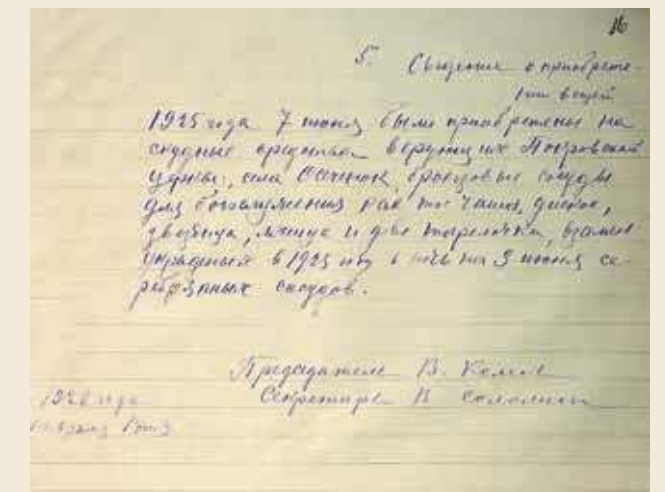 16
5. Сведения о приобрете-
нии вещей
1925 года 7 июня были приобретены на
скудные средства верующих Покровской
церкви, села бронзовые сосуды
для богослужения как то: чаша, дискос,
звездица, лжица и две тарелочки, взамен
украденных в 1925 году в ночь на 3 июня се-
ребрянных сосудов.
Председатель В.
Секретарь В
1926 года